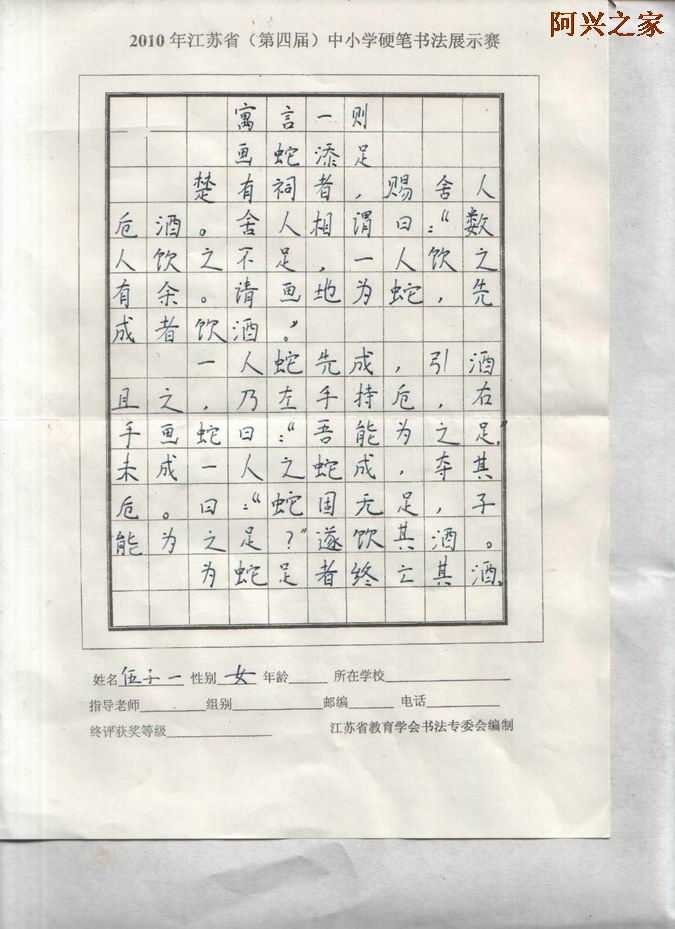 阿兴之家
2010年江苏省（第四届）中小学硬笔书法展示赛
寓言一则
画蛇添足
楚有祠者，赐舍人
卮酒。舍人相谓曰：“数
人饮之不足，一人饮之
有余。请画地为蛇，先
成者饮酒。”
一人蛇先成，引酒
且之，乃左手持卮，右
手画蛇曰：“吾能为之足。”
未成一人之蛇成，夺其
卮。曰：“蛇固无足，子
能为之足？”遂饮其酒。
为蛇足者终亡其酒。
姓名伍子一 性别女 年龄 所在学校
指导老师 组别 邮编 电话
终评获奖等级 江苏省教育学会书法专委会编制